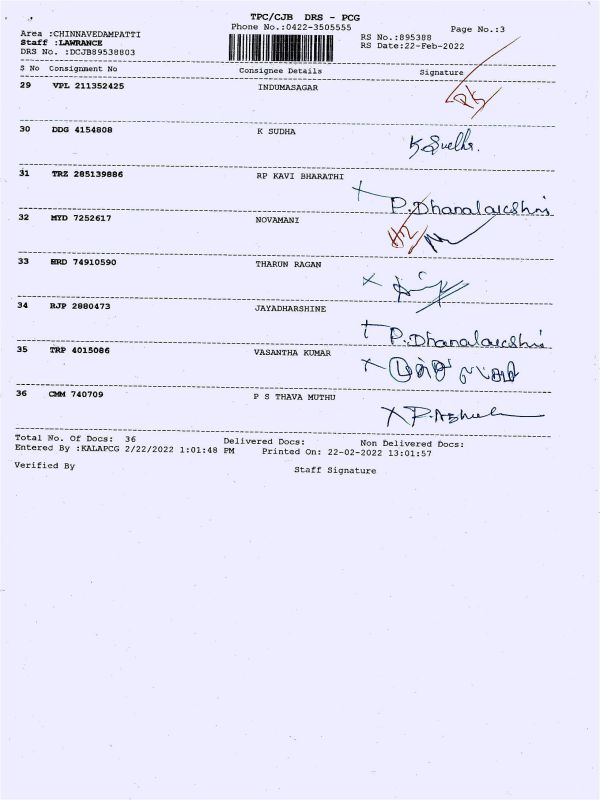 TPC/CJB DRS - PCG
Phone No.:0422-3505555
Page No.:3
Area :CHINNAVEDAMPATTI
RS No.:895388
Staff :LAWRANCE
RS Date:22-Feb-2022
DRS No. :DCJB89538803
S No Consignment No Consignee Details Signature
29 VPL 211352425 INDUMASAGAR
30 DDG 4154808 K SUDHA
K Sudha.
31 TRZ 285139886 RP KAVI BHARATHI
P. Dhanalakshmi
32 MYD 7252617 NOVAMANI
33 ERD 74910590 THARUN RAGAN
34 RJP 2880473 JAYADHARSHINE
P. Dhanalakshmi
35 TRP 4015086 VASANTHA KUMAR
36 CMM 740709 P S THAVA MUTHU
Total No. Of Docs: 36 Delivered Docs: Non Delivered Docs:
Entered By :KALAPCG 2/22/2022 1:01:48 PM Printed On: 22-02-2022 13:01:57
Verified By Staff Signature